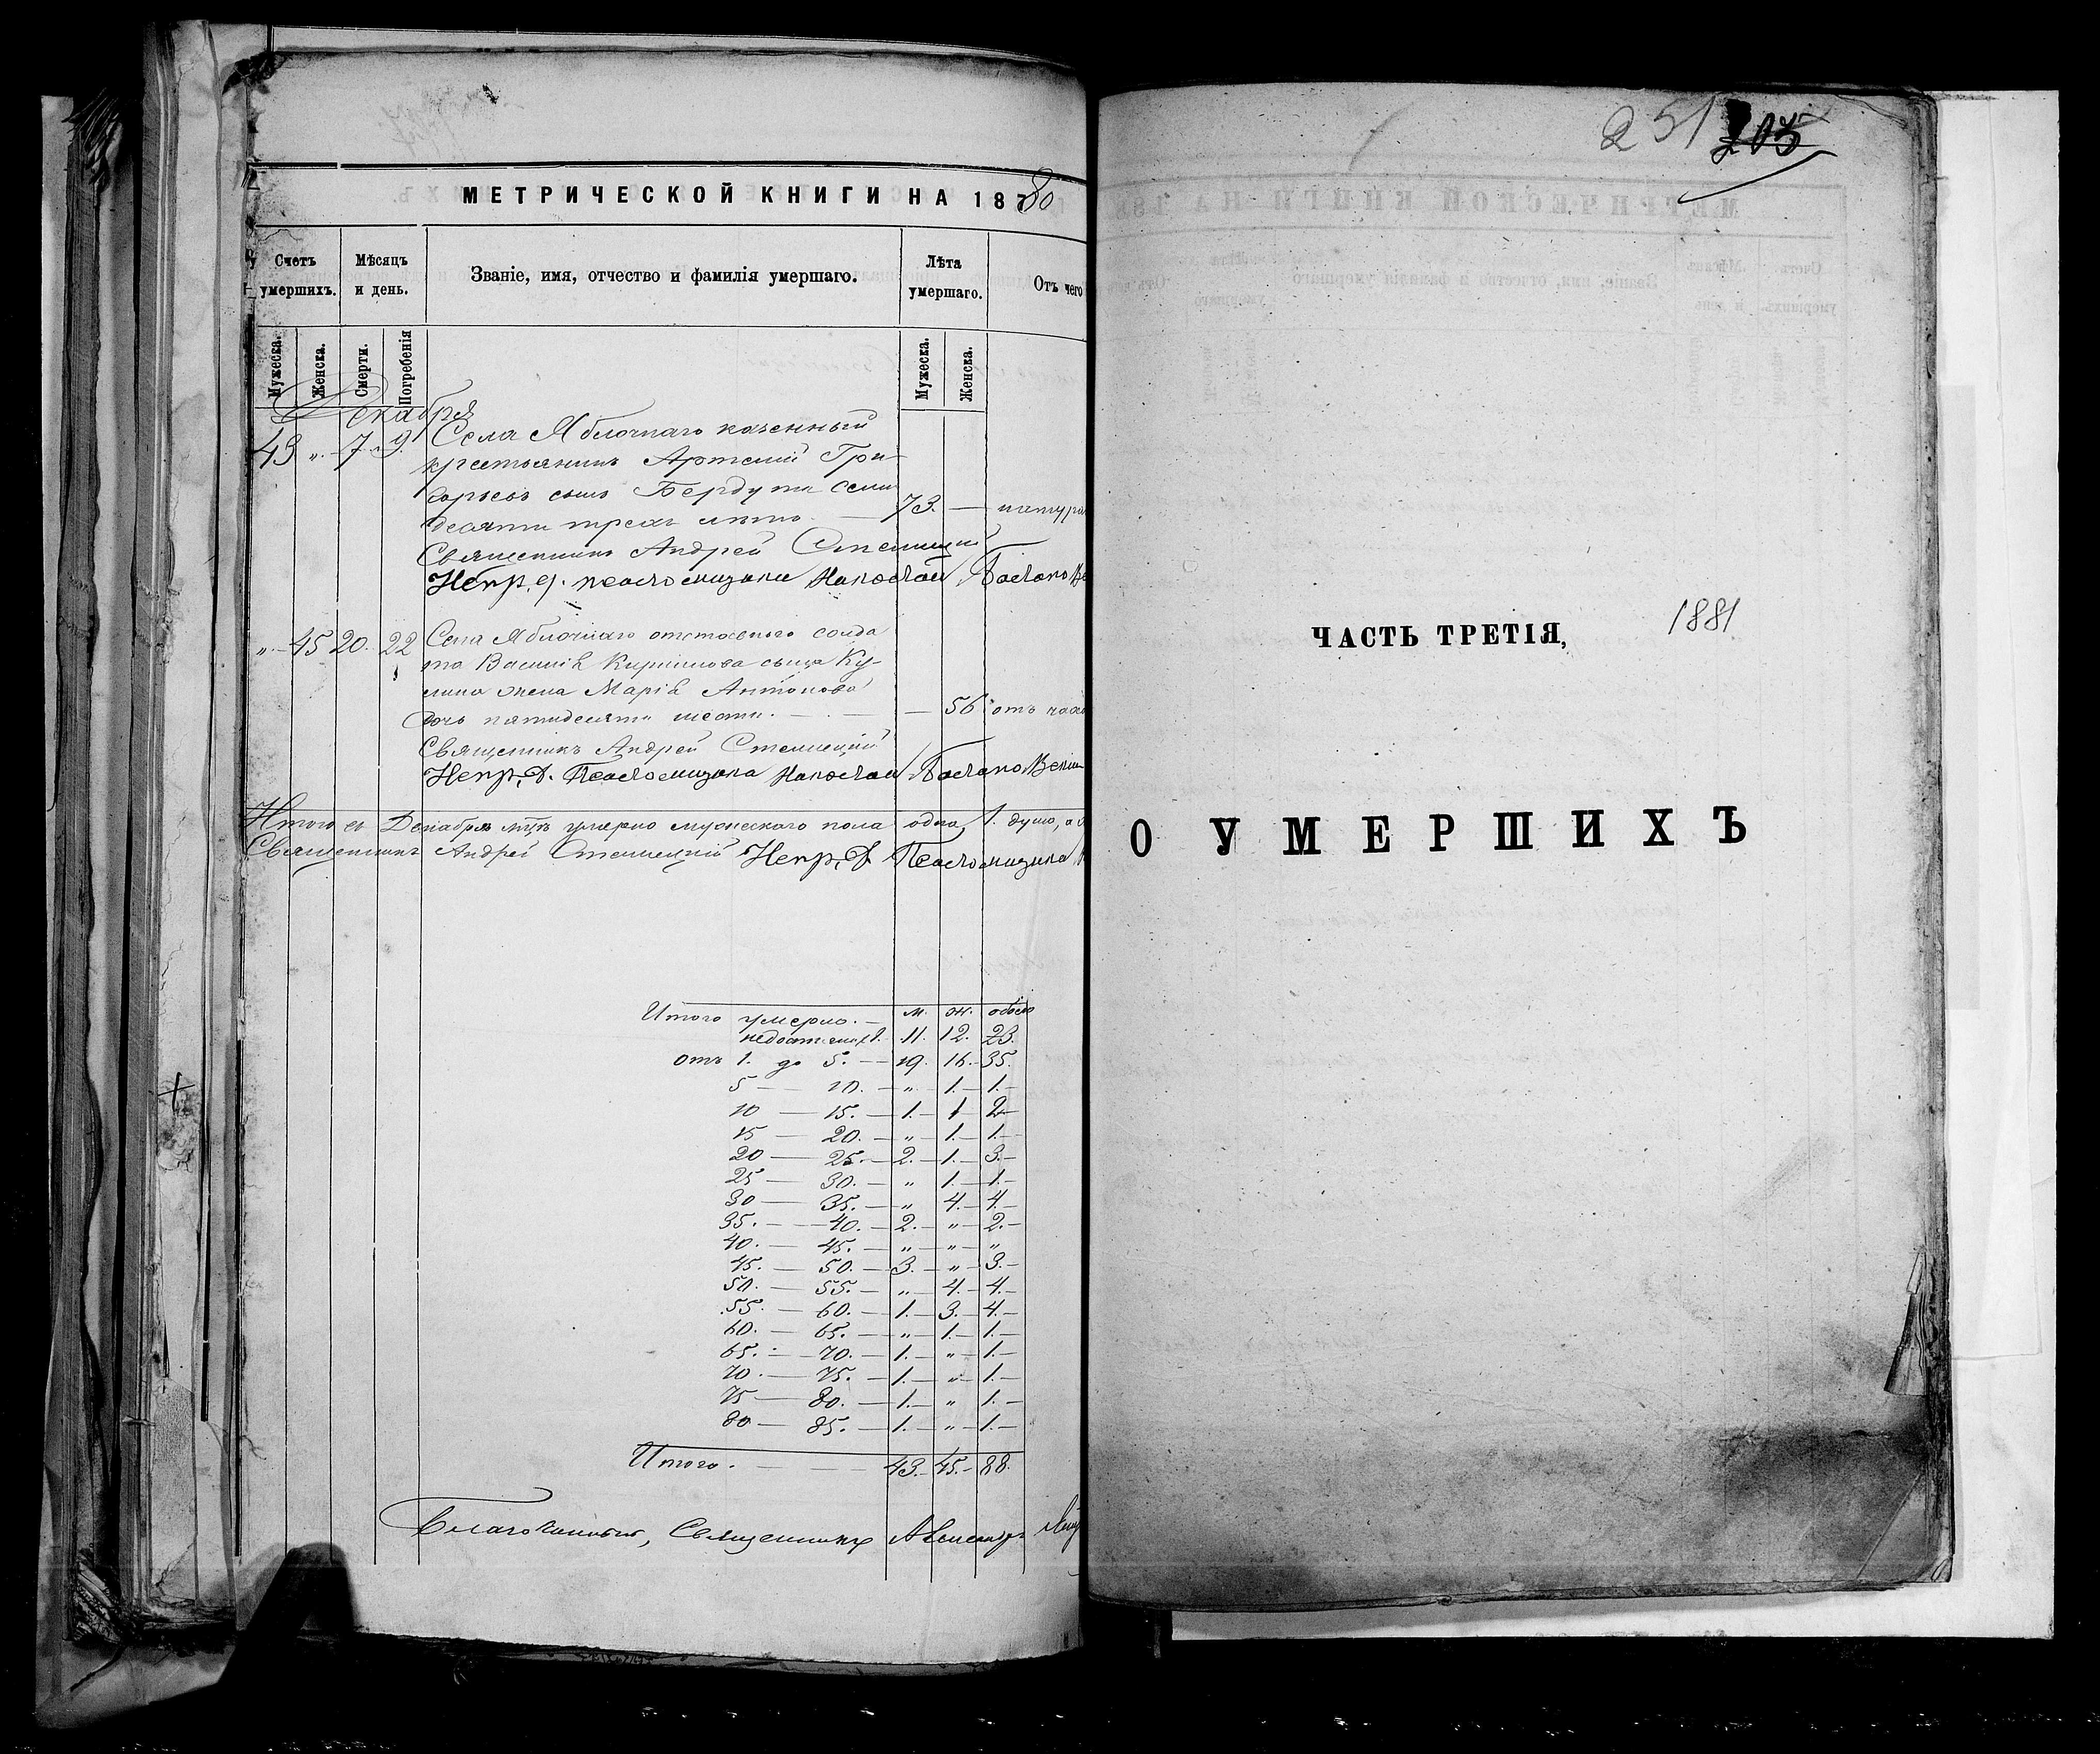 МЕТРИЧЕСКОЙ КНИГИ НА 18780
Счетъ умершихъ.
Мѣсяцъ и день.
Званіе, имя, отчество и фамилія умершаго.
Лѣта умершаго.
Отъ чего
Мужеска.
Женска.
Смерти.
Погребенія
Мужеска.
Женска.
Декабря
43 „ 7. 9. Села Яблочнаго казенный
крестьянинъ Артемій Гри-
горьевъ сынъ Бердута семи
десяти трехъ лѣтъ — 73. — натура
Священникъ Андрей
Николай
„ 45 20. 22 Села Яблочнаго отставнаго солда
та Василія Кирилова сына Ку-
лина жена Марія Антонова
дочь пятидесяти шести. — — 56 отъ
Священникъ Андрей
Николай
Итого въ Декабрѣ мцѣ умерло мужескаго пола одна, 1. душа, а
Священникъ Андрей
Итого умерло. — м. ж. обоего
недостигш. 1. 11. 12. 23.
отъ 1. до 5. — 19. 16. 35.
5 — 10. — „ 1. 1.
10 — 15. — 1. 1 2
15 — 20. — „ 1. 1.
20 — 25. — 2. 1. 3.
25 — 30. — „ 1. 1.
30 — 35. — „ 4. 4.
35. — 40. — 2. „ 2.
40. — 45. — „ „ „
45. — 50. — 3. „ 3.
50. — 55. — „ 4. 4.
55. — 60. — 1. 3. 4.
60. — 65. — „ 1. 1.
65. — 70. — 1. „ 1.
70. — 75. — 1. „ 1.
75 — 80. — 1. „ 1.
80 — 85. — 1. „ 1.
Итого. — 43. 45. 88.
Благочинный, Священникъ Александръ
251 205
ЧАСТЬ ТРЕТІЯ, 1881
О УМЕРШИХЪ